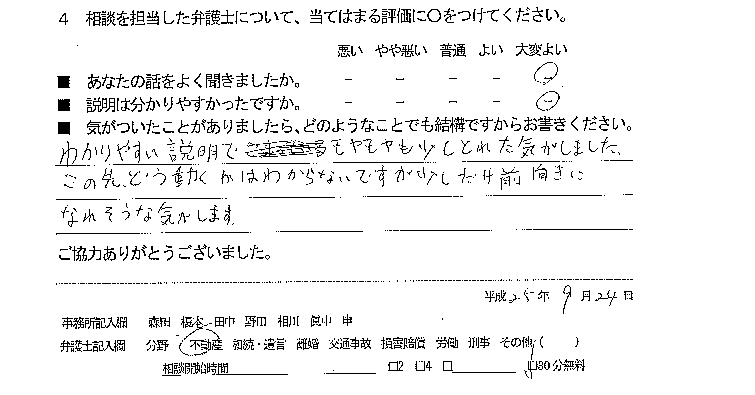 4 相談を担当した弁護士について、当てはまる評価に○をつけてください。
悪い やや悪い 普通 よい 大変よい
■ あなたの話をよく聞きましたか。 － － － － －
■ 説明は分かりやすかったですか。 － － － － －
■ 気がついたことがありましたら、どのようなことでも結構ですからお書きください。
わかりやすい説明で モヤモヤも少しとれた気がしました、
この先、どう動くかはわからないですが少しだけ前向きに
なれそうな気がします
ご協力ありがとうございました。
平成25年 9月24日
事務所記入欄 森田 榎本 田中 野田 相川
弁護士記入欄 分野 不動産 相続・遺言 離婚 交通事故 損害賠償 労働 刑事 その他（ ）
相談開始時間 □2 □4 □ □30分無料